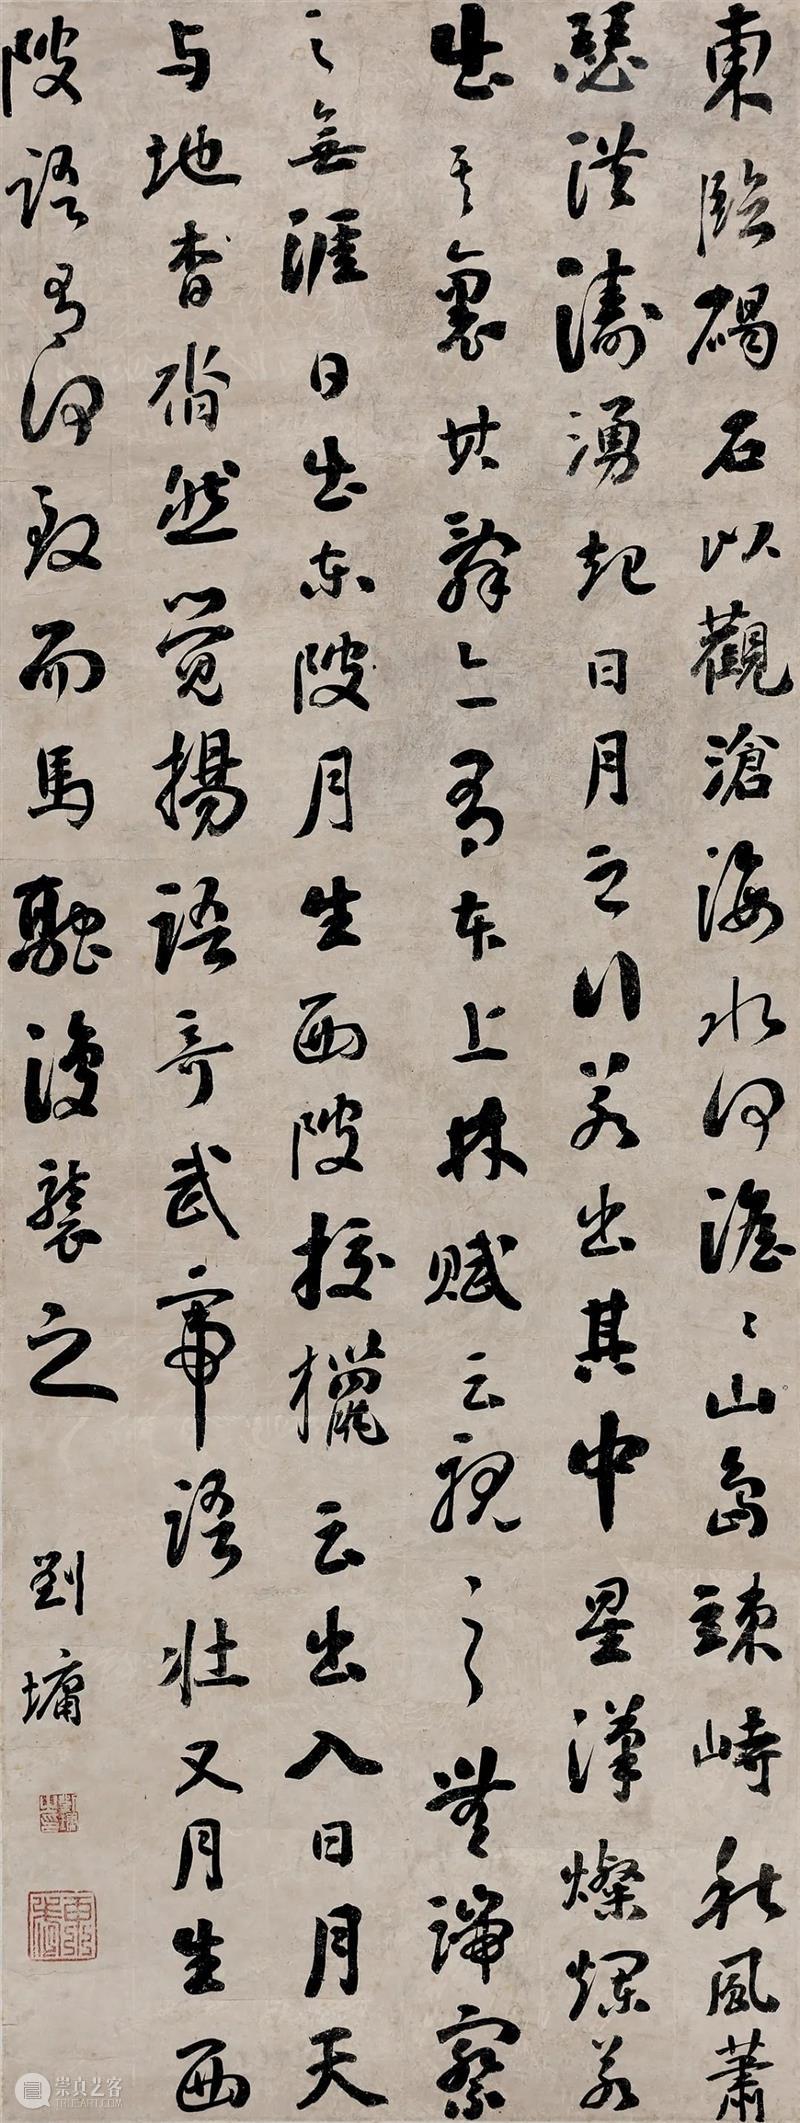 東臨碣石以觀滄海水何澹〻山島竦峙秋風蕭
瑟洪濤湧起日月之行若出其中星漢燦爛若
出其裏其辭亦有本上林賦云視之無端察
之無涯日出東陂月生西陂校獵云出入日月天
与地杳沓然觉揚語奇武帝語壯又月生西
陂語有何致而馬融復襲之
劉墉
崇真艺客
TRUEART.COM